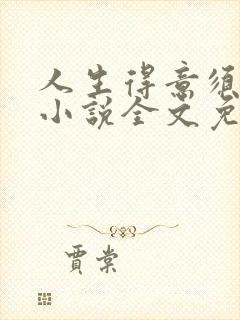 人生得意须
小說全文免
賈棠